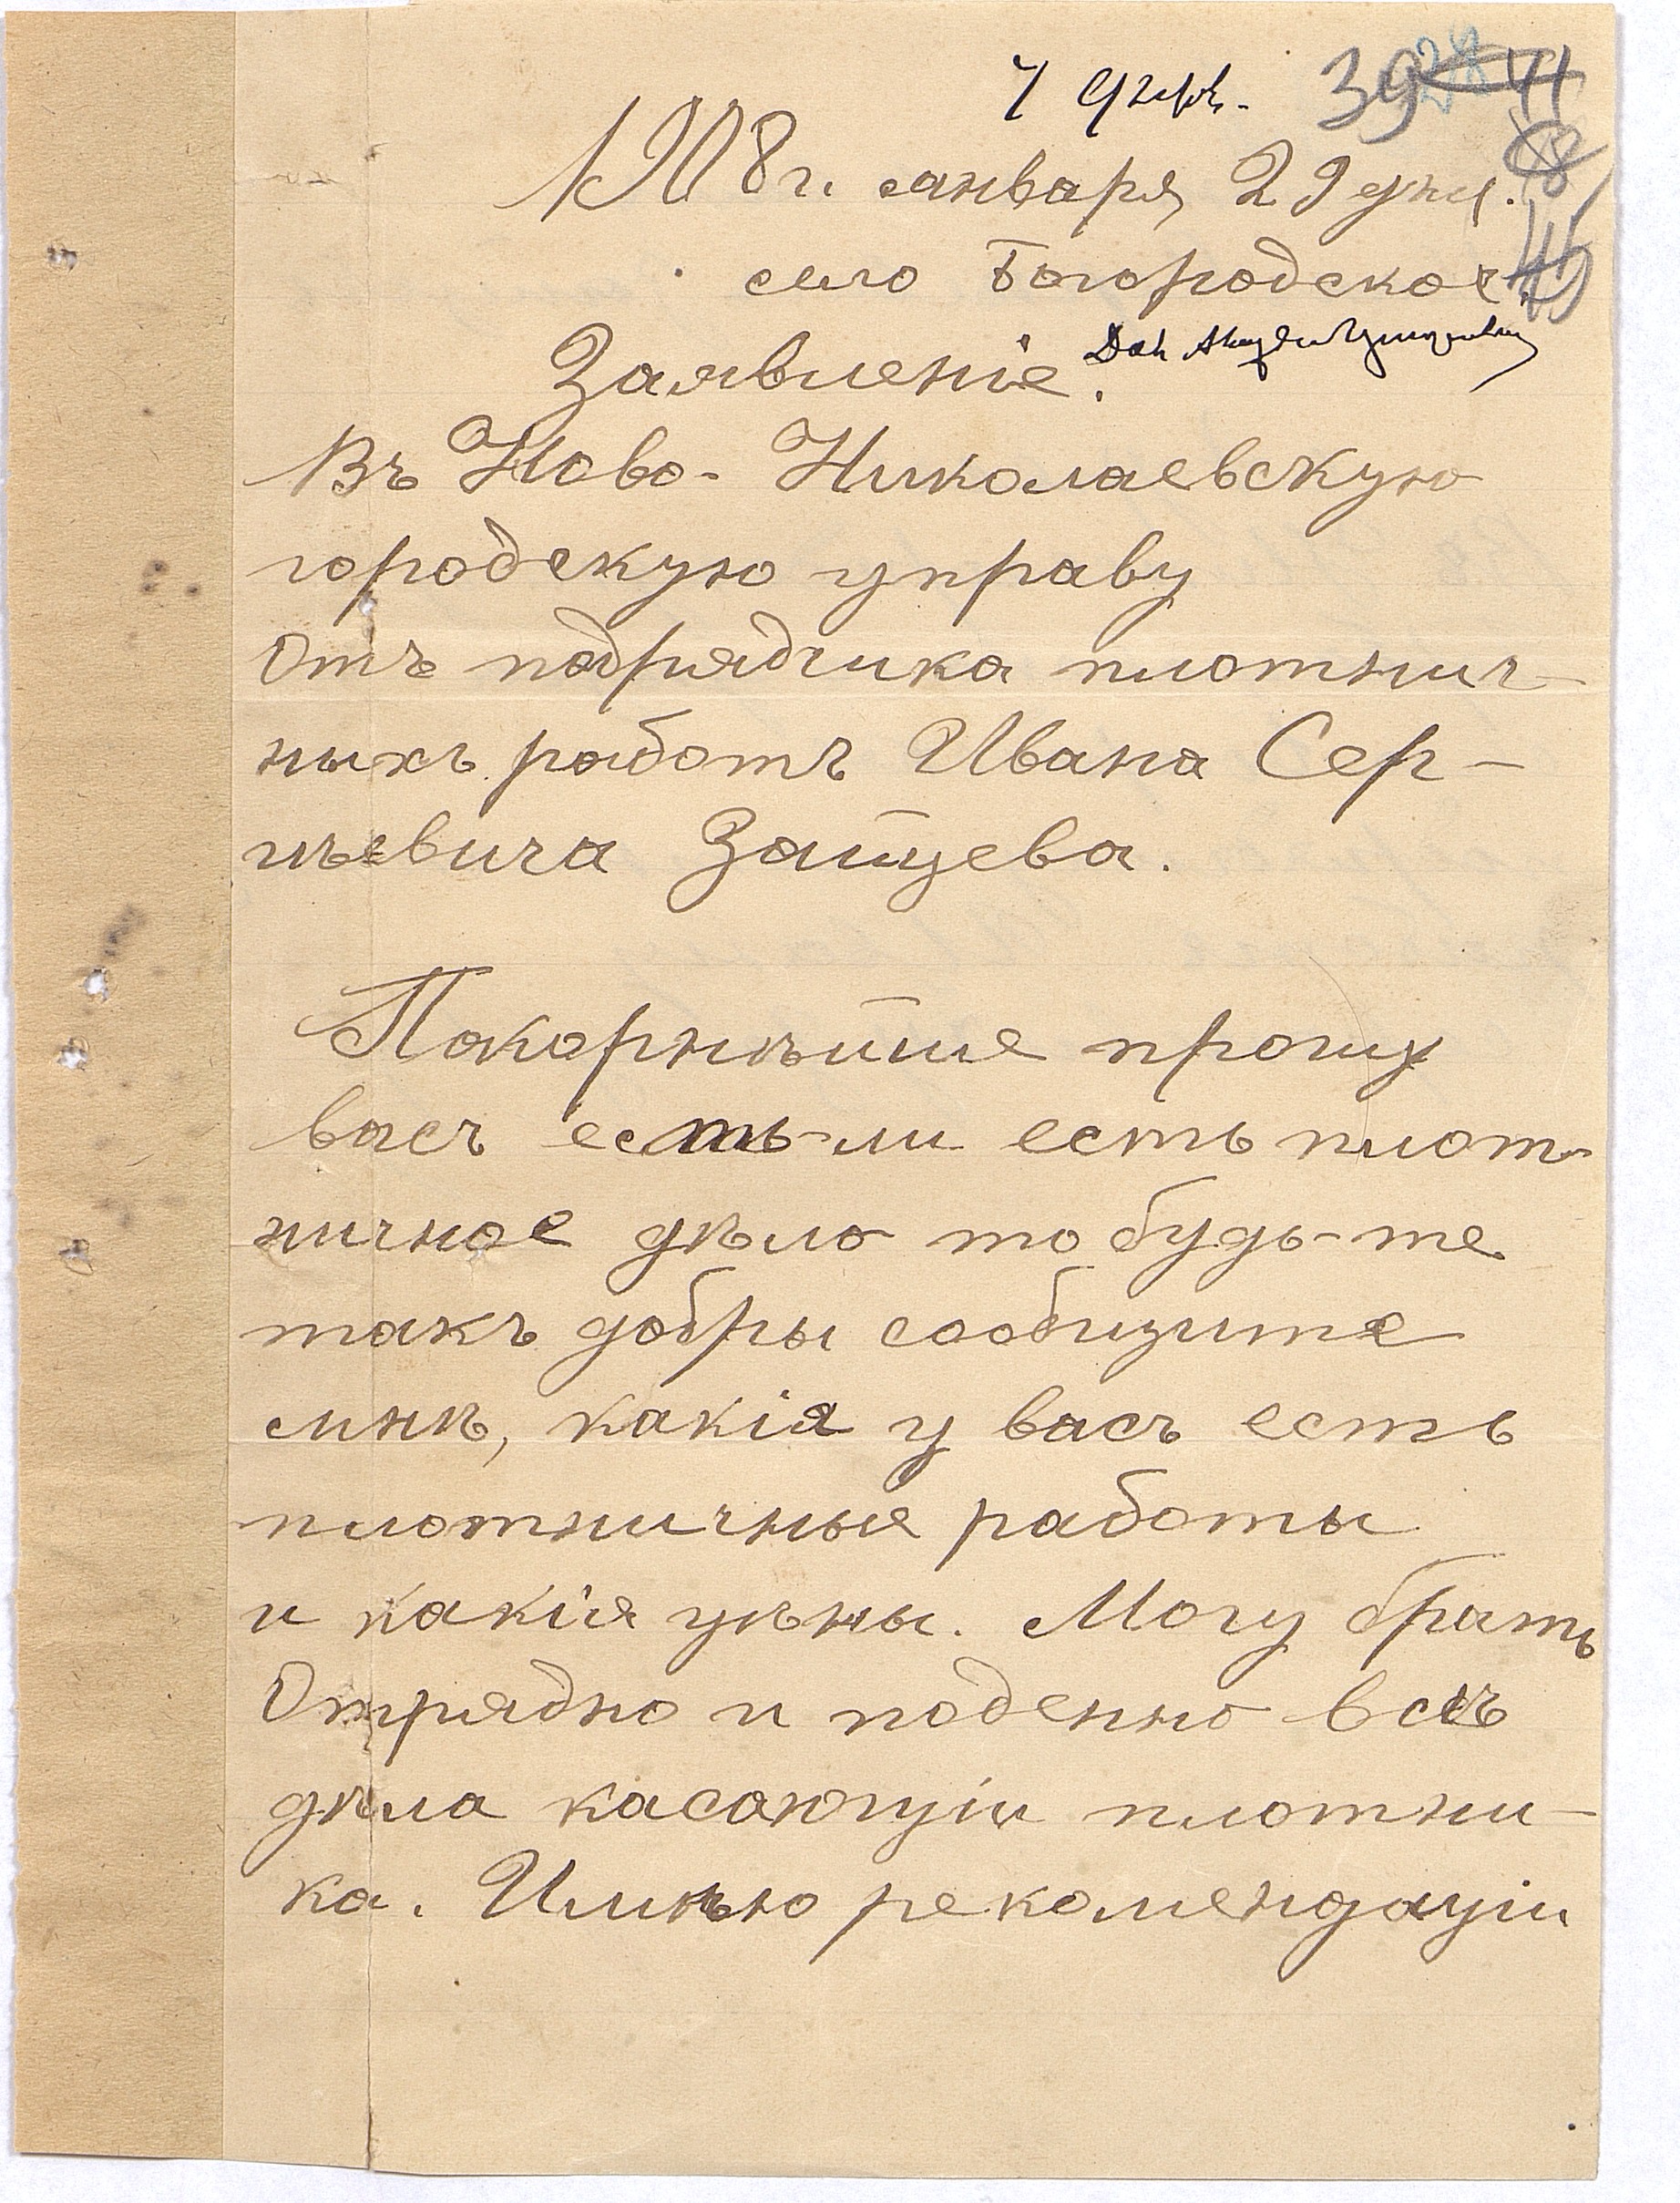 39
1908 г. января 29 дня.
село Богородское.
Заявленіе.
Въ Ново-Николаевскую
городскую управу
Отъ подрядчика плотнич-
ныхъ работъ Ивана Сер-
гѣевича Зайцева.
Покорнѣйше прошу
васъ есть-ли есть плот-
ничное дѣло то будь-те
такъ добры сообщите
мнѣ, какія у васъ есть
плотничные работы
и какія цѣны. Могу брать
Отрядно и поденно всѣ
дѣла касающіи плотни-
ка. Имѣю рекомендаціи